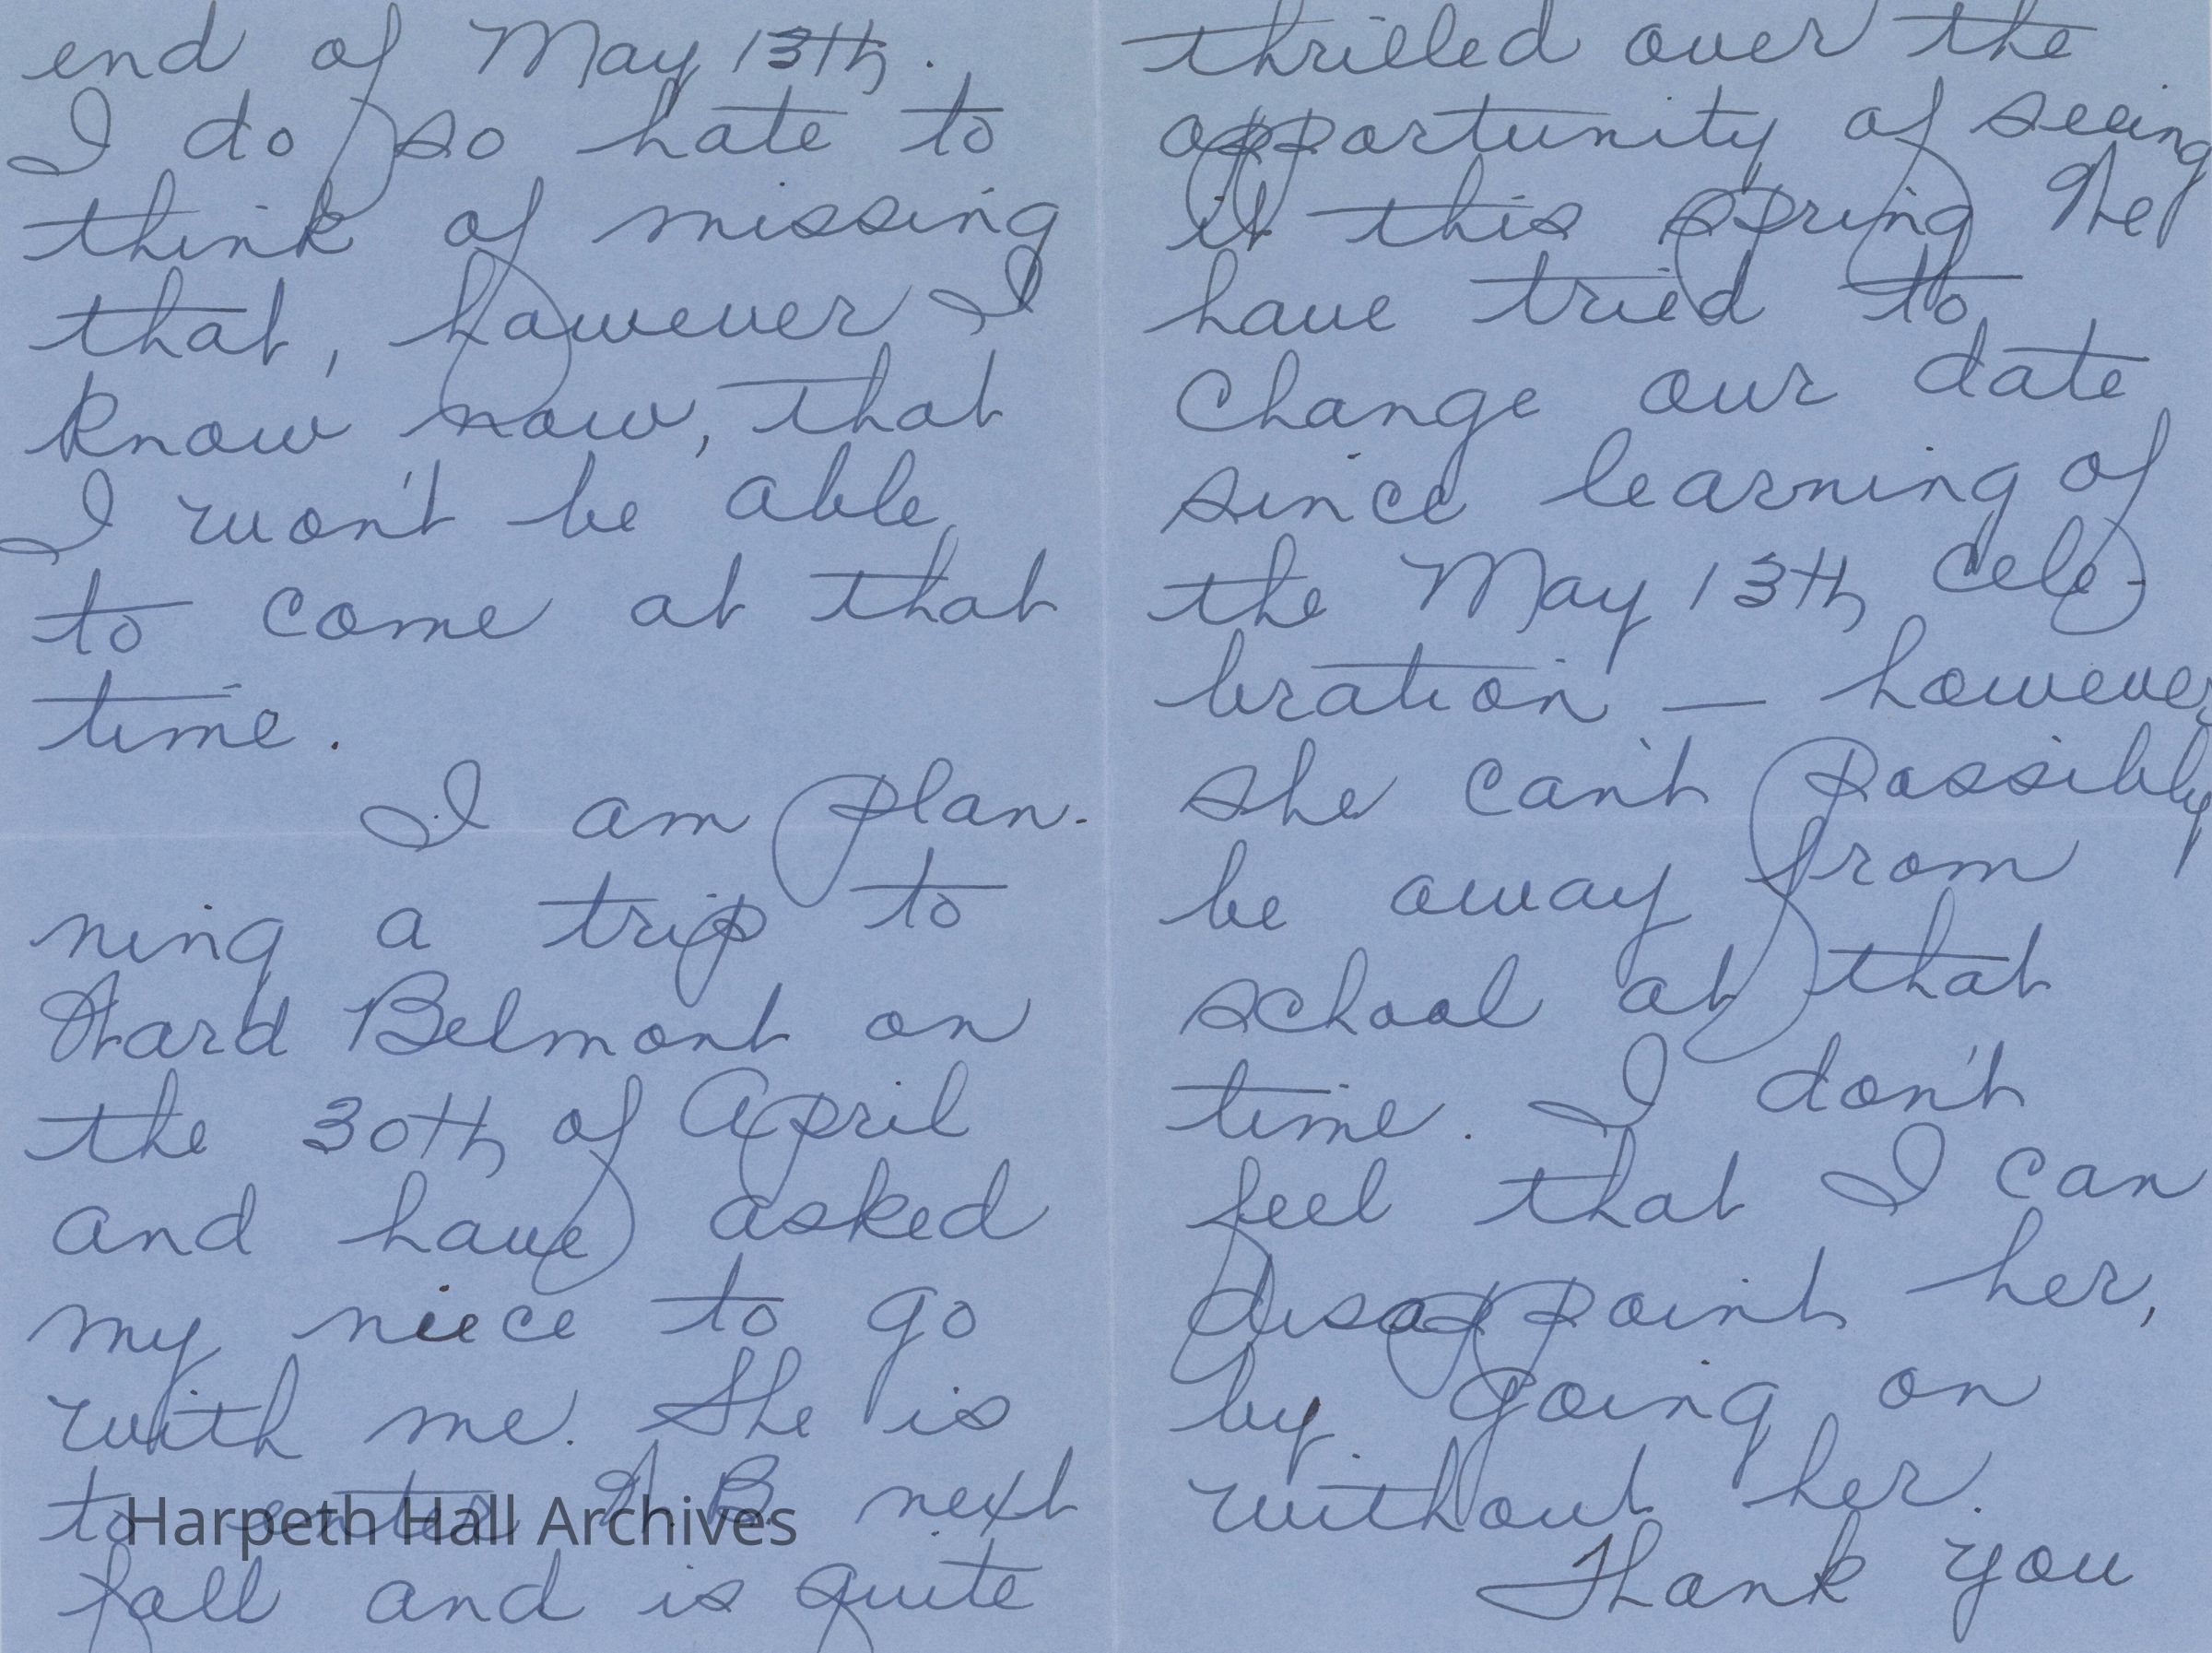 end of May 13th.
I do so hate to
think of missing
that, however I
know now, that
I won't be able
to come at that
time.
I am plan-
ning a trip to
Ward Belmont on
the 30th of April
and have asked
my niece to go
with me. She is
to enter W. B. next
fall and is quite
thrilled over the
opportunity of seeing
it this spring We
have tried to
change our date
since learning of
the May 13th cele-
bration — however
she can't possibly
be away from
school at that
time. I don't
feel that I can
disappoint her,
by going on
without her.
Thank you
Harpeth Hall Archives